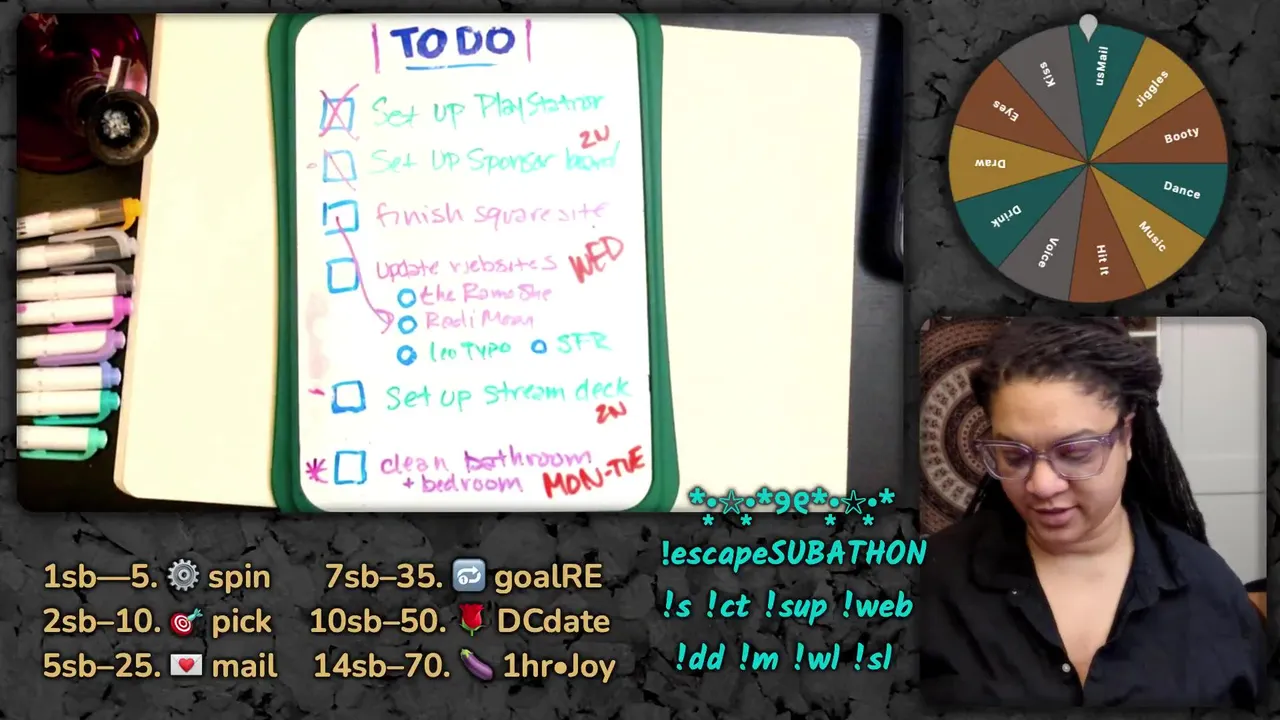 TO DO
Set up PlayStation
2N
Set Up Sponsor board
finish square site
update websites
WED
the Rome She
Redi Mean
leo Typo
SFR
Set up stream deck
2N
clean bathroom
+ bedroom
MON-TUE
usMail
Jiggles
Booty
Dance
Music
Hit It
Voice
Drink
Draw
Eyes
Kiss
*•☆•*୨୧*•☆•*
!escapeSUBATHON
!s !ct !sup !web
!dd !m !wl !sl
1sb—5. ⚙️ spin
2sb–10. 🎯 pick
5sb–25. 💌 mail
7sb–35. 🔂 goalRE
10sb–50. 🌹 DCdate
14sb–70. 🍆 1hr•Joy